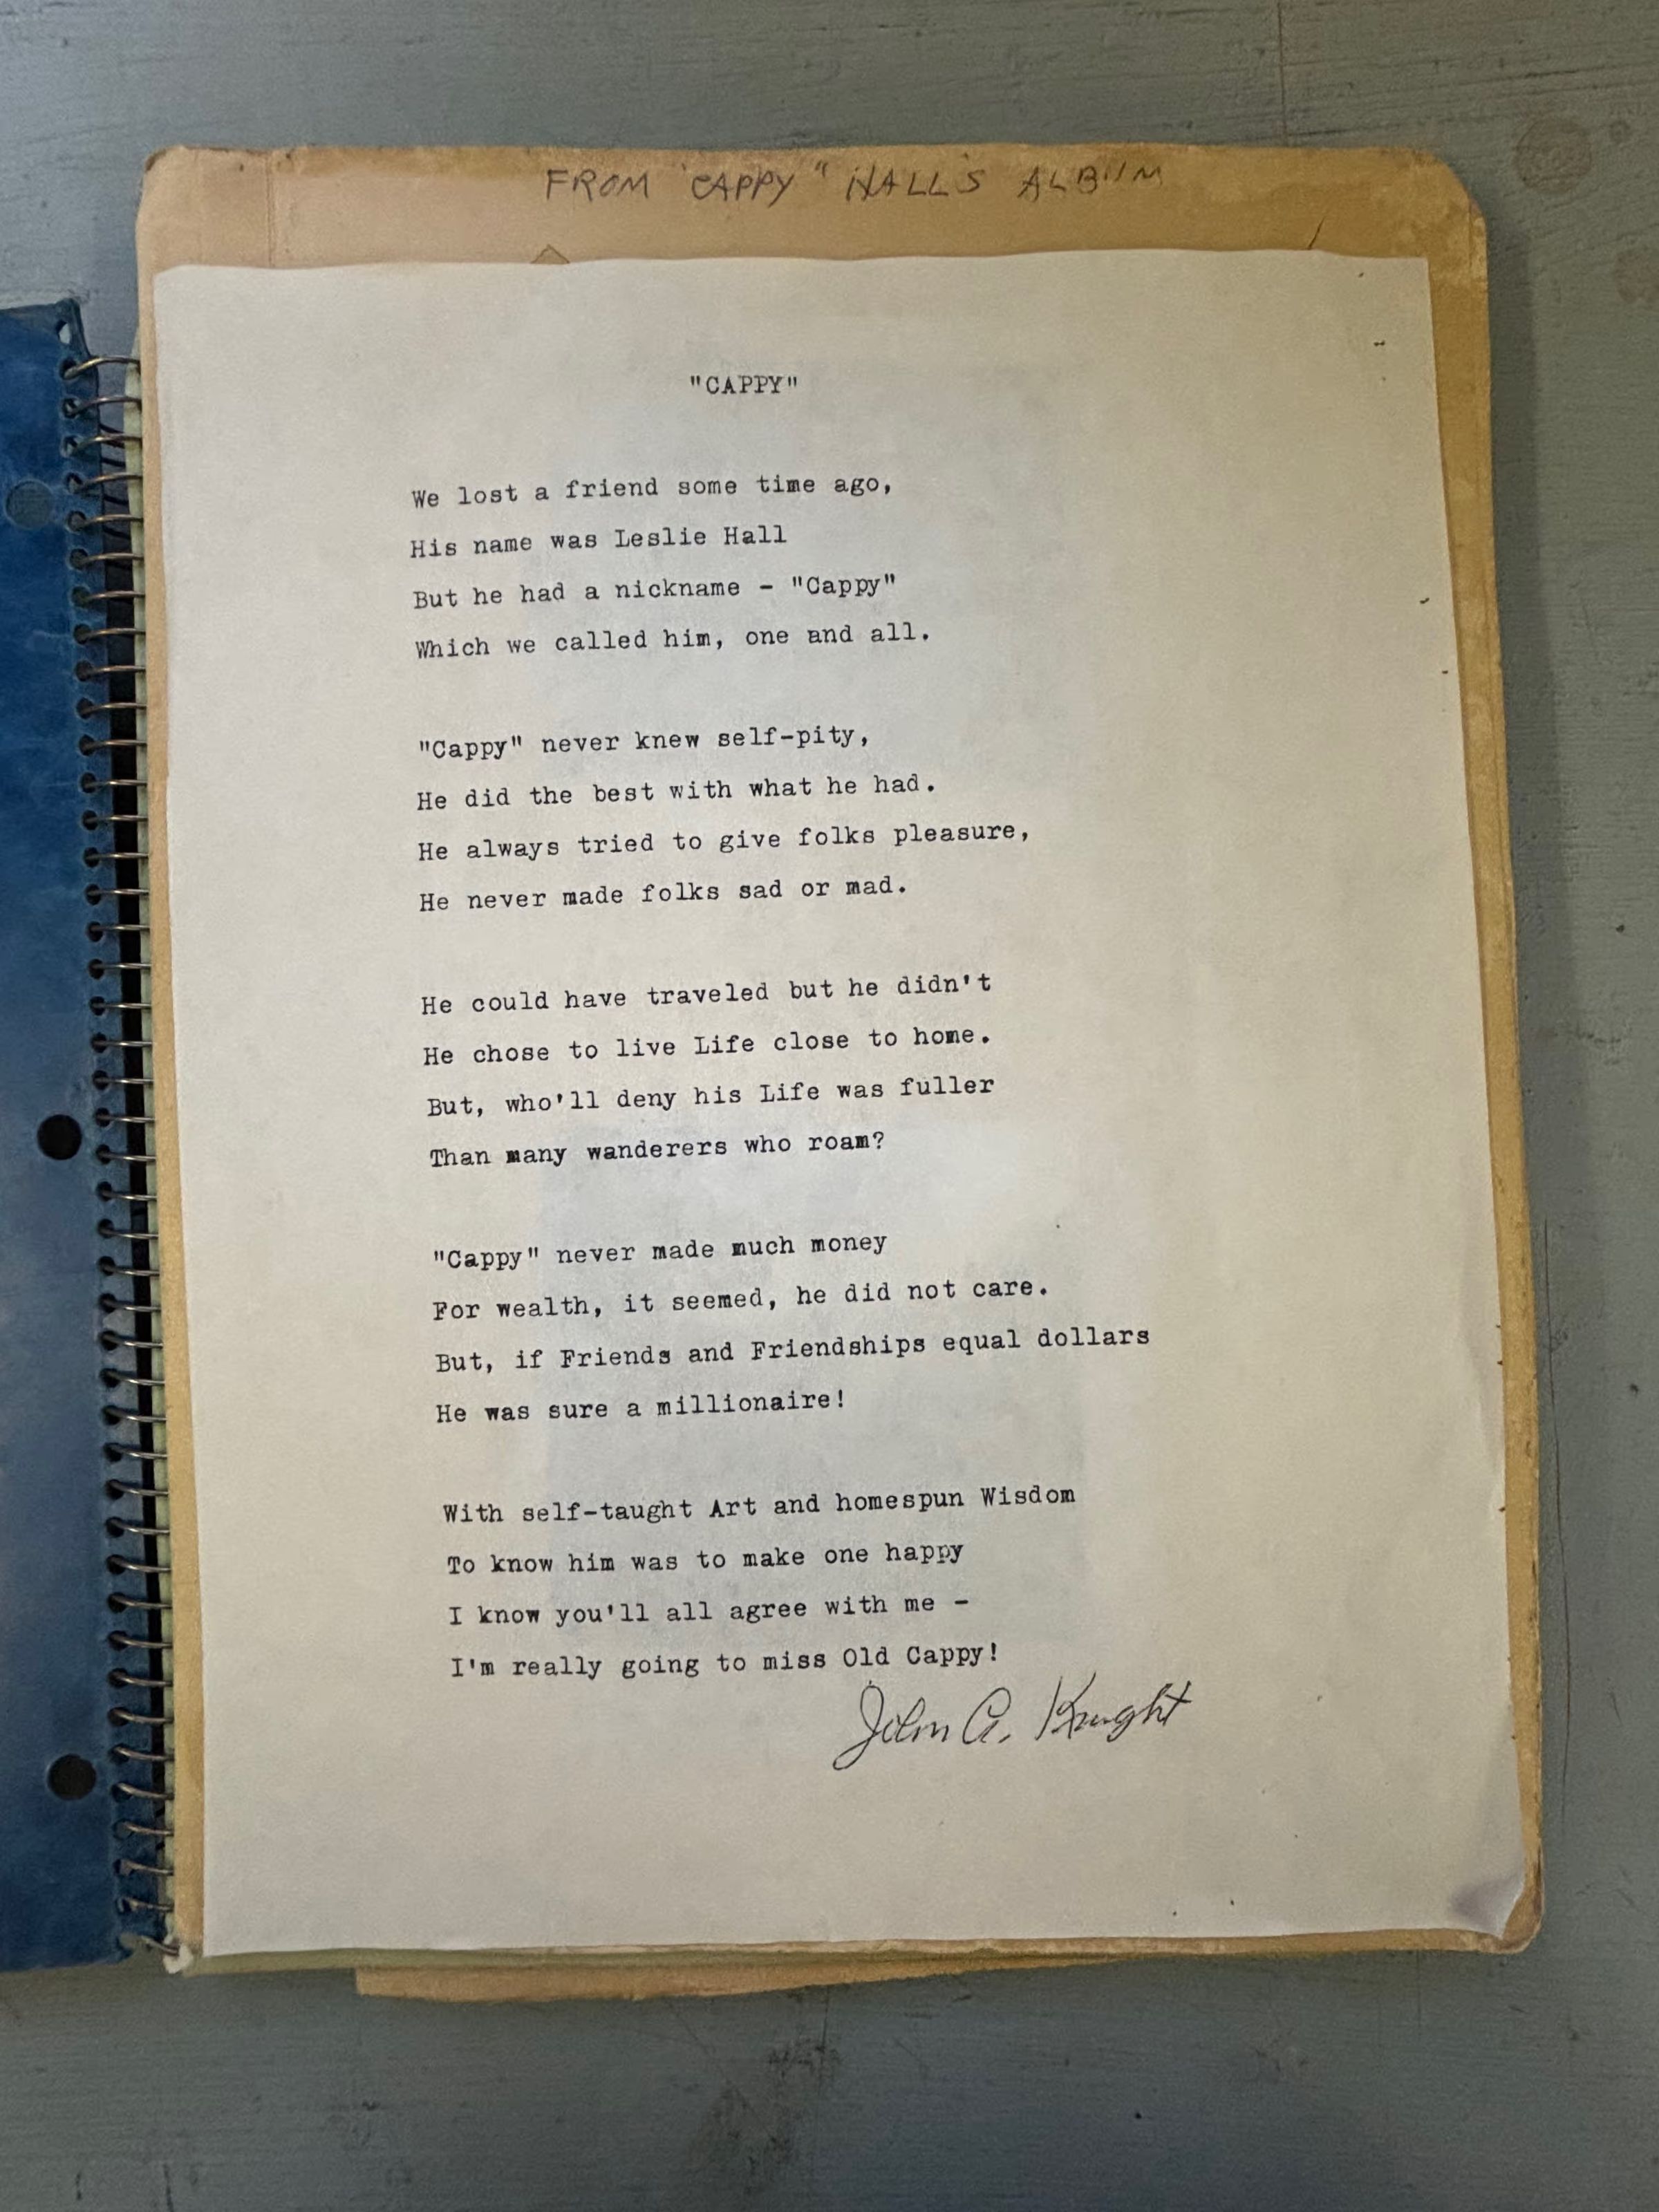 FROM "CAPPY" HALL'S ALBUM
"CAPPY"
We lost a friend some time ago,
His name was Leslie Hall
But he had a nickname - "Cappy"
Which we called him, one and all.
"Cappy" never knew self-pity,
He did the best with what he had.
He always tried to give folks pleasure,
He never made folks sad or mad.
He could have traveled but he didn't
He chose to live Life close to home.
But, who'll deny his Life was fuller
Than many wanderers who roam?
"Cappy" never made much money
For wealth, it seemed, he did not care.
But, if Friends and Friendships equal dollars
He was sure a millionaire!
With self-taught Art and homespun Wisdom
To know him was to make one happy
I know you'll all agree with me -
I'm really going to miss Old Cappy!
John A. Knight